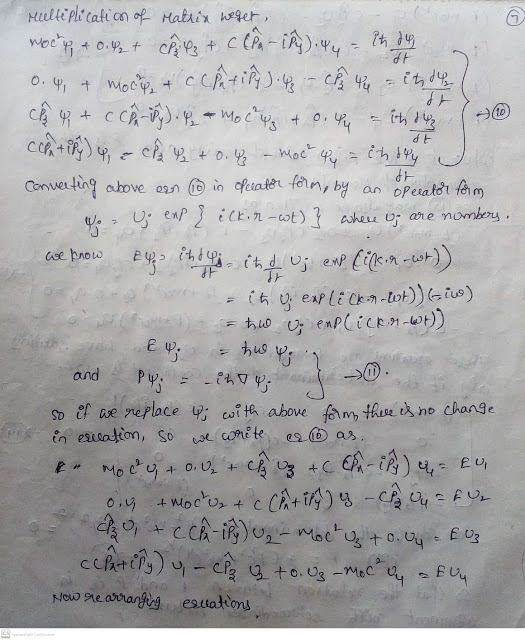 ⑦
Multiplication of Matrix weget,
m₀c²ψ₁ + 0.ψ₂ + cP̂_zψ₃ + c(P̂x - iP̂y).ψ₄ = iħ ∂ψ₁/∂t
0.ψ₁ + m₀c²ψ₂ + c(P̂x + iP̂y).ψ₃ - cP̂_z ψ₄ = iħ ∂ψ₂/∂t → ⑩
cP̂_z ψ₁ + c(P̂x - iP̂y).ψ₂ - m₀c²ψ₃ + 0.ψ₄ = iħ ∂ψ₃/∂t
c(P̂x + iP̂y)ψ₁ - cP̂_z ψ₂ + 0.ψ₃ - m₀c²ψ₄ = iħ ∂ψ₄/∂t
Converting above eqn ⑩ in operator form, by an operator form
ψj = Uj exp { i(k.r - wt) } where Uj are numbers.
we know Eψj = iħ ∂ψj/∂t = iħ ∂/∂t Uj exp (i(k.r - wt))
= iħ Uj exp(i(k.r - wt))(-iw)
= ħw Uj exp(i(k.r - wt))
E ψj = ħw ψj.
and Pψj = -iħ∇ψj. } → ⑪.
so if we replace ψj with above form, there is no change
in equation, so we write eq ⑩ as.
m₀c²U₁ + 0.U₂ + cP̂_z U₃ + c(P̂x - iP̂y) U₄ = EU₁
0.U₁ + m₀c²U₂ + c(P̂x + iP̂y) U₃ - cP̂_z U₄ = EU₂
cP̂_z U₁ + c(P̂x - iP̂y)U₂ - m₀c²U₃ + 0.U₄ = EU₃
c(P̂x + iP̂y) U₁ - cP̂_z U₂ + 0.U₃ - m₀c²U₄ = EU₄
Now rearranging equations
CS